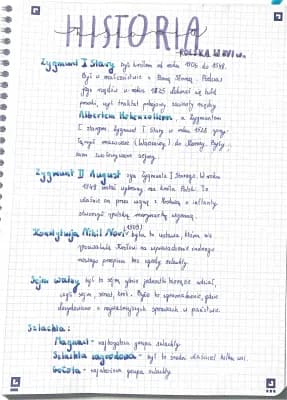 HISTORIA
POLSKA W XVI w.
Zygmunt I Stary był królem od roku 1506 do 1548.
Był w małżeństwie z Boną Sforzą. Podczas
jego rządów w roku 1525 odbył się hołd
pruski, był traktat pokojowy zawarty między
Albertem Hohenzollernem, a Zygmuntem
I starym. Zygmunt I Stary w roku 1526 przy-
łączył mazowsze (Warszawę) do Korony. Były
tam zwoływane sejmy.
Zygmunt II August syn Zygmunta I Starego. W roku
1548 został wybrany na króla Polski. To
właśnie on przez wojnę z Rosją o inflanty
stworzył polską marynarkę wojenną.
(1505)
Konstytucja Nihil Novi była to ustawa, która nie
pozwalała Królowi na wprowadzenie żadnego
nowego przepisu bez zgody szlachty.
Sejm walny był to sejm gdzie jednostki biorące udział,
czyli sejm, senat, król. Było to zgromadzenie, gdzie
decydowano o najważniejszych sprawach w państwie.
Szlachta:
Magnaci - najbogatsza grupa szlachty
Szlachta zagrodowa - był to średni właściciel kilku wsi.
Gołota - najuboższa grupa szlachty.